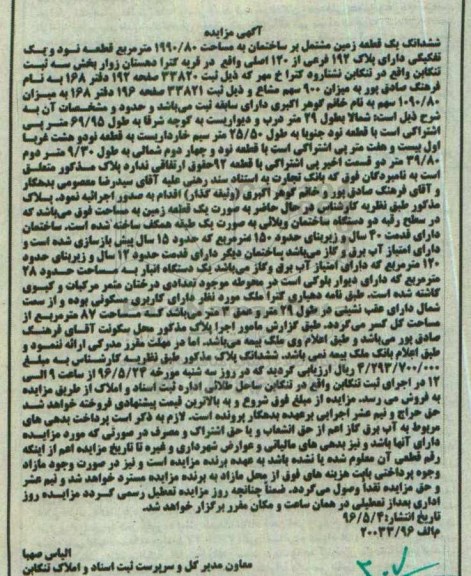 آگهی مزایده
ششدانگ یک قطعه زمین مشتمل بر ساختمان به مساحت ۱۹۹۰/۸۰ مترمربع قطعه نود و یک
تفکیکی دارای پلاک ۱۹۲ فرعی از ۱۳۰ اصلی واقع در قریه کترا دهستان زوار بخش سه ثبت
تنکابن واقع در تنکابن نشتارود کترا خ مهر که ذیل ثبت ۳۳۸۲۰ صفحه ۱۹۳ دفتر ۱۶۸ به نام
فرهنگ صادق پور به میزان ۹۰۰ سهم مشاع و ذیل ثبت ۳۳۸۲۱ صفحه ۱۹۶ دفتر ۱۶۸ به میزان
۱۰۹۰/۸۰ سهم به نام خانم گوهر اکبری دارای سابقه ثبت می‌باشد و حدود و مشخصات آن به
شرح ذیل است: شمالا بطول ۲۹ متر درب و دیواریست به کوچه شرقا به طول ۶۹/۹۵ متر پی
اشتراکی است با قطعه نود جنوبا به طول ۲۵/۵۰ متر سیم خارداریست به قطعه نودو هشت غربا
اول بیست و هفت متر پی اشتراکی است با قطعه نود و چهار دوم شمالی به طول ۹/۳۰ متر دوم
۳۹/۸۰ متر دو قسمت اخیر پی اشتراکی با قطعه ۹۲حقوق ارتفاقی ندارد پلاک مذکور متعلق
است به نامبردگان فوق که بانک تجارت به استناد سند رهنی علیه آقای سیدرضا معصومی بدهکار
و آقای فرهنگ صادق پور و خانم گوهر اکبری (وثیقه گذار) اقدام به صدور اجرائیه نمود. پلاک
مذکور طبق نظریه کارشناس در حال حاضر به صورت یک قطعه زمین به مساحت فوق می‌باشد که
در سطح رقبه دو دستگاه ساختمان ویلائی به صورت یک طبقه همکف ساخته شده است. ساختمان
دارای قدمت ۴۰ سال و زیربنای حدود ۱۵۰ مترمربع که حدود ۱۵ سال پیش بازسازی شده است و
دارای امتیاز آب برق و گاز می‌باشد ساختمان دیگر دارای قدمت حدود ۱۲ سال و زیربنای حدود
۱۲۰ مترمربع که دارای امتیاز آب برق وگاز می‌باشد یک دستگاه انبار به مساحت حدود ۲۸
مترمربع که دارای دیوار بلوکی است در محوطه موجود تعدادی درختان مثمر مرکبات و کیوی
کاشته شده است. طبق نامه دهیاری کترا ملک مورد نظر دارای کاربری مسکونی بوده و از سمت
شمال دارای عقب نشینی در طول ۲۹ متر و عمق ۳ متر می‌باشد که مساحت ۸۷ مترمربع از
مساحت کل کسر می‌گردد. طبق گزارش مامور اجرا پلاک مذکور محل سکونت آقای فرهنگ
صادق پور می‌باشد و طبق اعلام وی ملک بیمه می‌باشد. اما در مهلت مقرر مدرکی ارائه ننمود و
طبق اعلام بانک ملک بیمه نمی باشد. ششدانگ پلاک مذکور طبق نظریه کارشناس به مبلغ
۴/۲۹۳/۷۰۰/۰۰۰ ریال ارزیابی گردید که در روز سه شنبه مورخه ۹۶/۵/۲۴ از ساعت ۹ الی
۱۲ در اجرای ثبت تنکابن واقع در تنکابن ساحل طلائی اداره ثبت اسناد و املاک از طریق مزایده
به فروش می رسد. مزایده از مبلغ فوق شروع و به بالاترین قیمت پیشنهادی فروخته خواهد شد
حق حراج و نیم عشر اجرایی برعهده بدهکار پرونده است. لازم به ذکر است پرداخت بدهی های
مربوط به آب برق گاز اعم از حق انشعاب و یا حق اشتراک و مصرف در صورتی که مورد مزایده
دارای آنها باشد و نیز بدهی های مالیاتی و عوارض شهرداری و غیره تا تاریخ مزایده اعم از اینکه
رقم قطعی آن معلوم شده یا نشده باشد به عهده برنده مزایده است و نیز در صورت وجود مازاد
وجوه پرداختی بابت هزینه های فوق از محل مازاد به برنده مزایده مسترد خواهد شد و نیم عشر
و حق مزایده نقدا وصول می‌گردد. ضمنا چنانچه روز مزایده تعطیل رسمی گردد مزایده روز
اداری بعداز تعطیلی در همان ساعت و مکان مقرر برگزار خواهد شد.
تاریخ انتشار:۹۶/۵/۴
م/الف ۲۰۰۳۳/۹۶
الیاس صهبا
معاون مدیر کل و سرپرست ثبت اسناد و املاک تنکابن